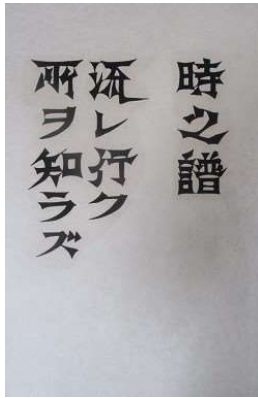 時之譜
流レ行ク
所ヲ知ラズ